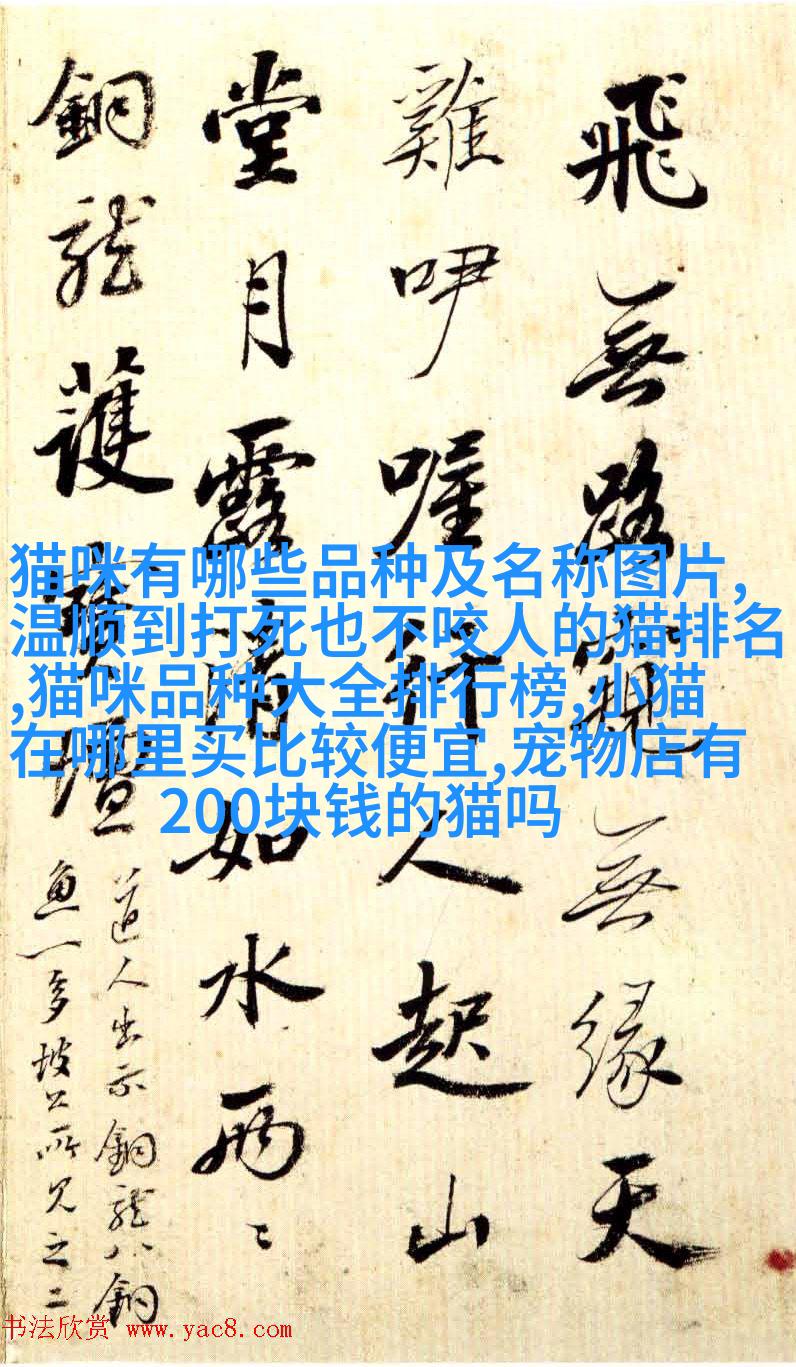 飛無路窺無緣天
雞咿喔行人起山
堂月露清如水兩〻
銅龍護寶壇
道人出示銅龍八銅
魚一多坡公所見之二
猫咪有哪些品种及名称图片,
温顺到打死也不咬人的猫排名
,猫咪品种大全排行榜,小猫
在哪里买比较便宜,宠物店有
200块钱的猫吗
书法欣赏 www.yac8.com